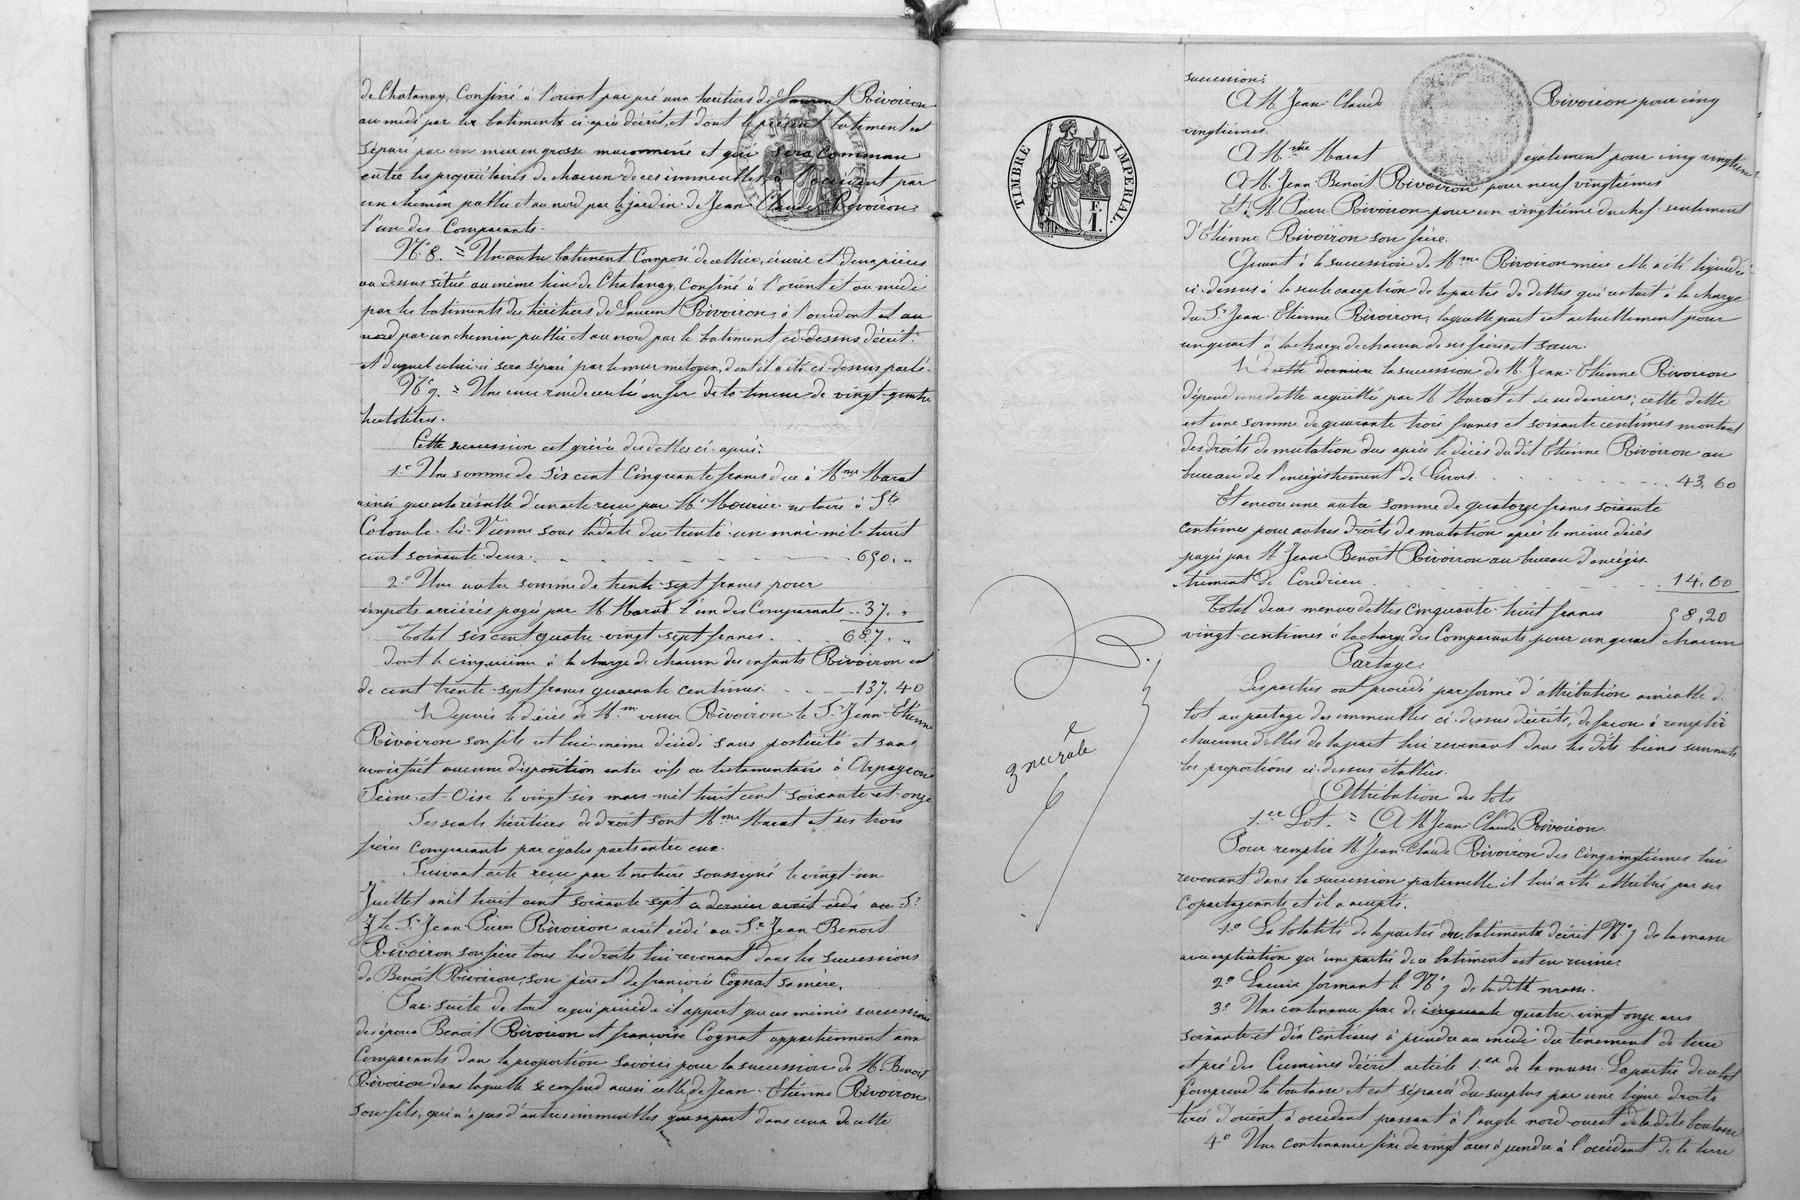 de Chatanay, Confiné à l'orient par pré aux héritiers de Laurent Rivoiron
au midi par les batiments ci-après décrit, et dont le présent batiment est
Séparé par un mur en grosse maconnerie et qui sera commun
entre les propriétaires de chacun de ces immeubles, à l'occident par
un chemin public et au nord par le jardin de Jean Claude Rivoiron
l'un des Comparants.
N° 8. = Un autre batiment Composé de cellier, écurie et deux pièces
au dessus situé au même lieu de Chatanay, Confiné à l'orient et au midi
par les batiments des héritiers de Laurent Rivoiron, à l'occident et au
nord par un chemin public et au nord par le batiment ci-dessus décrit.
Et duquel celui-ci sera séparé par le mur mitoyen, dont il a été ci-dessus parlé.
N° 9. = Une cuve ronde cerclée en fer de la teneur de vingt-quatre
hectolitres.
Cette succession est grévée des dettes ci-après:
1° Une somme de six cent Cinquante francs due à Mme Marat
ainsi que cela résulte d'un acte reçu par Me Mourier notaire à Ste
Colombe-lès-Vienne sous la date du trente-un mai mil huit
cent soixante-deux. 650. "
2° Une autre somme de trente-sept francs pour
impots arriérés payés par M. Marat l'un des Comparants 37. "
Total six cent quatre-vingt-sept francs. 687. "
Dont le cinquième à la charge de chacun des enfants Rivoiron est
de cent trente-sept francs quarante centimes. 137. 40
Depuis le décès de Mme veuve Rivoiron le Sr Jean-Etienne
Rivoiron son fils est lui-même décédé sans postérité et sans
avoir fait aucune disposition entre vifs ou testamentaire à Arpageon
Seine-et-Oise le vingt six mars mil huit cent soixante-et-onze
Ses seuls héritiers de droit sont Mme Marat et ses trois
frères Comparants par égales parts entre eux.
Suivant acte reçu par le notaire soussigné le vingt-un
Juillet mil huit cent soixante-sept ce dernier avait cédé au Sr
le Sr Jean Pierre Rivoiron avait cédé au Sr Jean Benoit
Rivoiron son frère tous les droits lui revenant dans les successions
de Benoît Rivoiron, son père et de françoise Cognat sa mère.
Par suite de tout ce qui précède il appert que ces mêmes successions
des époux Benoit Rivoiron et françoise Cognat appartiennent aux
Comparants dans la proportion savoir: pour la succession de M. Benoit
Rivoiron dans laquelle se confond aussi celle de Jean-Etienne Rivoiron
son fils, qui n'a pas d'autres immeubles que sa part dans ceux de cette
succession;
A M. Jean-Claude Rivoiron pour cinq
vingtièmes.
A Mme Marat egalement pour cinq vingtièmes
A M. Jean-Benoit Rivoiron pour neuf vingtièmes
Et M. Pierre Rivoiron pour un vingtième du chef seulement
d'Etienne Rivoiron son frère.
Quant à la succession de Mme Rivoiron mère elle a été liquidée
ci-dessus à la seule exception de la partie de dettes qui restait à la charge
du Sr Jean-Etienne Rivoiron, laquelle part est actuellement pour
un quart à la charge de chacun de ses frères et sœur.
De cette dernière la succession de M. Jean-Etienne Rivoiron
dépend une dette acquittée par M Marat et de ses deniers; cette dette
est une somme de quarante trois francs et soixante centimes montant
des droits de mutation dus après le décès du dit Etienne Rivoiron au
bureau de l'enregistrement de Givors 43. 60
Et encore une autre somme de quatorze francs soixante
centimes pour autres droits de mutation après le même décès
payés par M. Jean Benoit Rivoiron au bureau d'enregis
-trement de Condrieu 14. 60
Total de ces menues dettes cinquante-huit francs 58, 20
vingt centimes à la charge des Comparants pour un quart chacun
Partage.
Les parties ont procédé par forme d'attribution amiable de
lot au partage des immeubles ci-dessus décrits, de façon à remplir
chacune d'elles de la part lui revenant dans les dits biens suivant
les proportions ci-dessus établies.
Attribution des lots
1.er Lot. = A M Jean-Claude Rivoiron.
Pour remplir M. Jean-Claude Rivoiron des Cinq vingtièmes lui
revenant dans la succession paternelle, il lui a été attribué par ses
Copartageants et il a accepté.
1° La totalité de la partie des batiments décrit N° 7 de la masse
avec explication qu'une partie de ce batiment est en ruine.
2° La cuve formant le N° 9 de la dite masse.
3° Une contenance fixe de cinquante quatre-vingt-onze ares
soixante et dix Centiares à prendre au midi du tènement de terre
et pré des Cumines décrit article 1.er de la masse. La partie de ce lot
comprend la boutasse et est séparée du surplus par une ligne droite
tirée d'orient à occident passant à l'angle nord-ouest de la dite boutasse
4° Une contenance fixe de vingt ares à prendre à l'occident de la terre
TIMBRE IMPERIAL
F.
1.